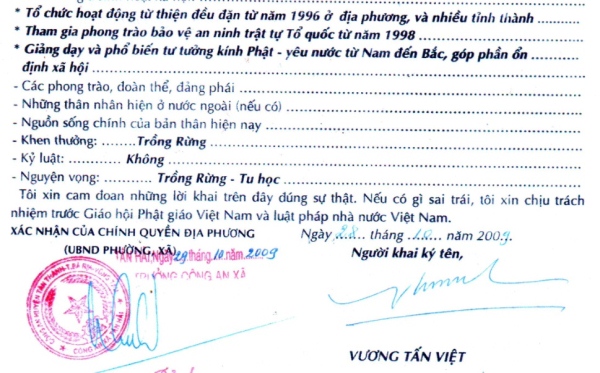 * Tổ chức hoạt động từ thiện đều đặn từ năm 1996 ở địa phương, và nhiều tỉnh thành
* Tham gia phong trào bảo vệ an ninh trật tự Tổ quốc từ năm 1998
* Giảng dạy và phổ biến tư tưởng kính Phật - yêu nước từ Nam đến Bắc, góp phần ổn
định xã hội
- Các phong trào, đoàn thể, đảng phái
- Những thân nhân hiện ở nước ngoài (nếu có)
- Nguồn sống chính của bản thân hiện nay
- Khen thưởng: Trồng Rừng
- Kỷ luật: Không
- Nguyện vọng: Trồng Rừng - Tu học
Tôi xin cam đoan những lời khai trên dây đúng sự thật. Nếu có gì sai trái, tôi xin chịu trách
nhiệm trước Giáo hội Phật giáo Việt Nam và luật pháp nhà nước Việt Nam.
XÁC NHẬN CỦA CHÍNH QUYỀN ĐỊA PHƯƠNG
(UBND PHƯỜNG, XÃ)
Ngày 28 tháng 10 năm 2009.
Người khai ký tên,
Ngày 29 tháng 10 năm 2009
TRƯỞNG CÔNG AN XÃ
VƯƠNG TẤN VIỆT